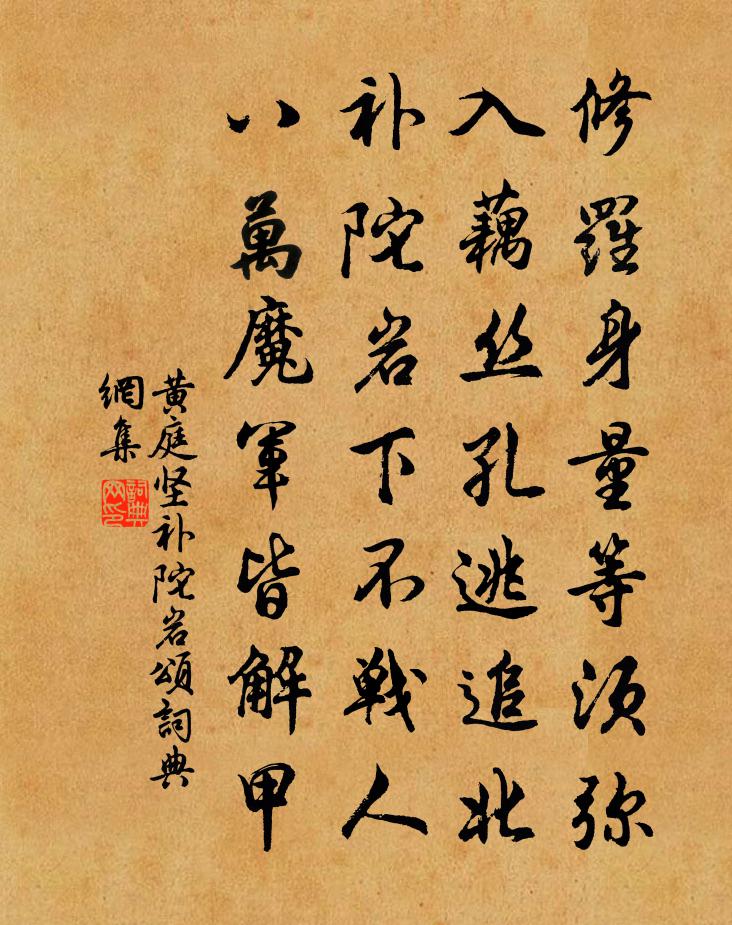 修羅身量等须弥
入藕丝孔逃追北
补陀岩下不戦人
八萬魔軍皆解甲
黄庭坚补陀岩頌詞典
網集
詞典
网印